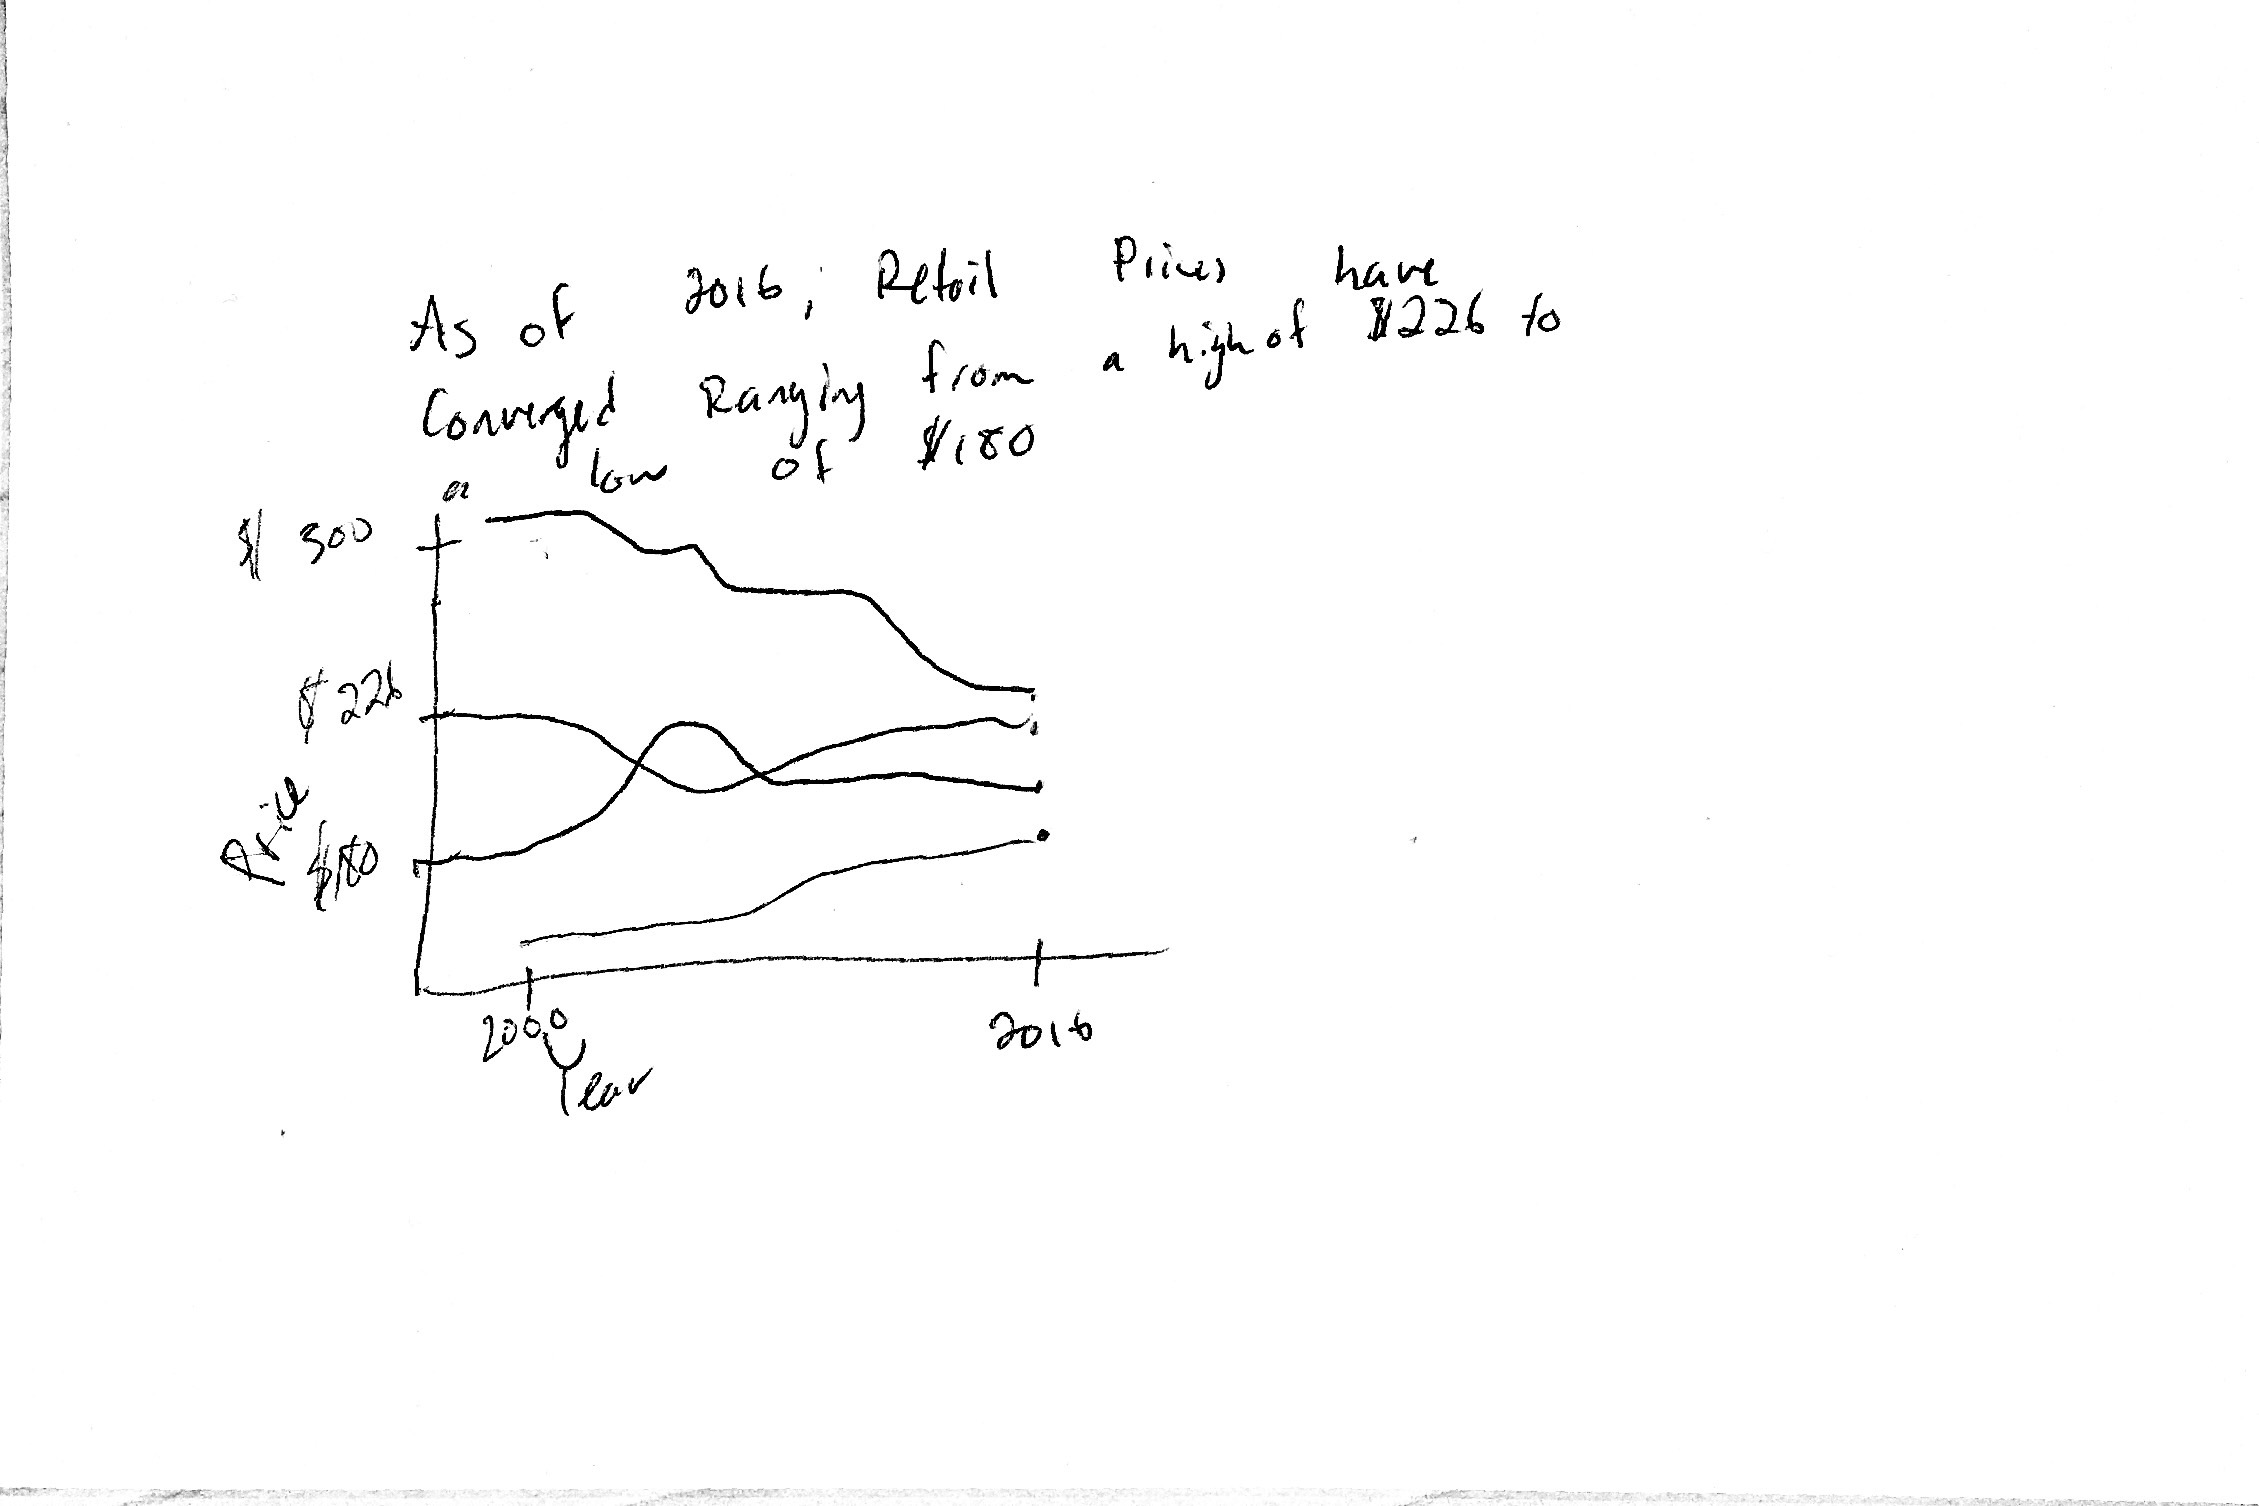 As of 2016, Retail Prices have
Converged Ranging from a high of $226 to
a low of $180
$ 300
$ 226
Price
$180
2000
2016
Year